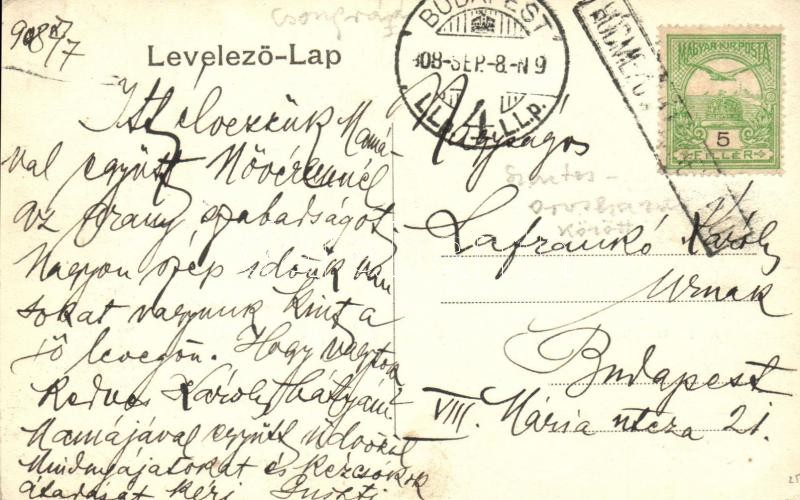 908 IX/7
Levelező-Lap
Itt élvezzük Mamá-
val együtt Nővéremnél
az arany szabadságot.
Nagyon szép időnk van
sokat vagyunk kint a
jó levegőn. Hogy vagytok
Kedves Károly bátyám?
Mamájával együtt üdvözöl
Mindnyájatokat és kézcsókok
átadását kéri
BUDAPEST
908-SEP.-8.-N 9
MAGYAR·KIR·POSTA
5
FILLER
Nagyságos
Szentes-
orosháza
között
Lafrankó Károly
Urnak
Budapest
VIII. Mária utcza 21.